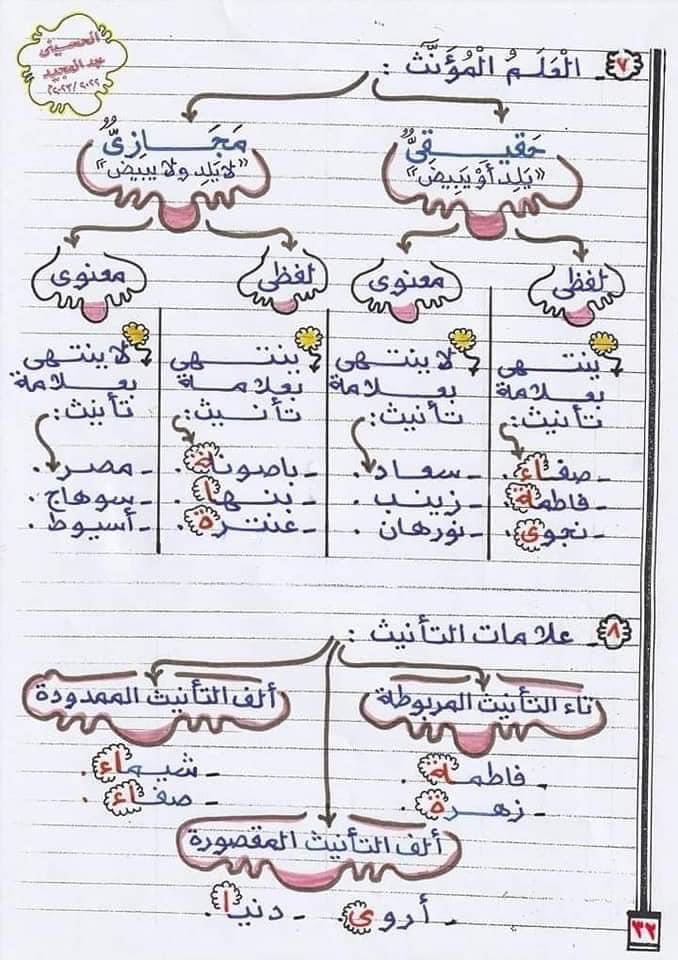 الحسينى
عبد المجيد
٢٠٢٢/٢٠٢٣م
٧ـ الْعَلَمُ الْمُؤَنَّث :
حَقيقـيٌّ
«يَلِد أَوْ يَبِيض»
مَجَـازِىٌّ
«لا يَلِد ولا يبيض»
لفظى
معنوى
لفظى
معنوى
ينتهى
بعلامة
تأنيث:
ـ صفاء.
ـ فاطمة.
ـ نجوى.
لا ينتهى
بعلامة
تأنيث:
ـ سعاد.
ـ زينب.
ـ نورهان.
ينتهى
بعلامة
تأنيث:
ـ باصونة.
ـ بنها.
ـ عنترة.
لا ينتهى
بعلامة
تأنيث:
ـ مصر.
ـ سوهاج.
ـ أسيوط.
٨ـ علامات التأنيث :
تاء التأنيث المربوطة
ـ فاطمة.
ـ زهرة.
ألف التأنيث الممدودة
ـ شيماء.
ـ صفاء.
ألف التأنيث المقصورة
ـ أروى. ـ دنيا.
٣٢